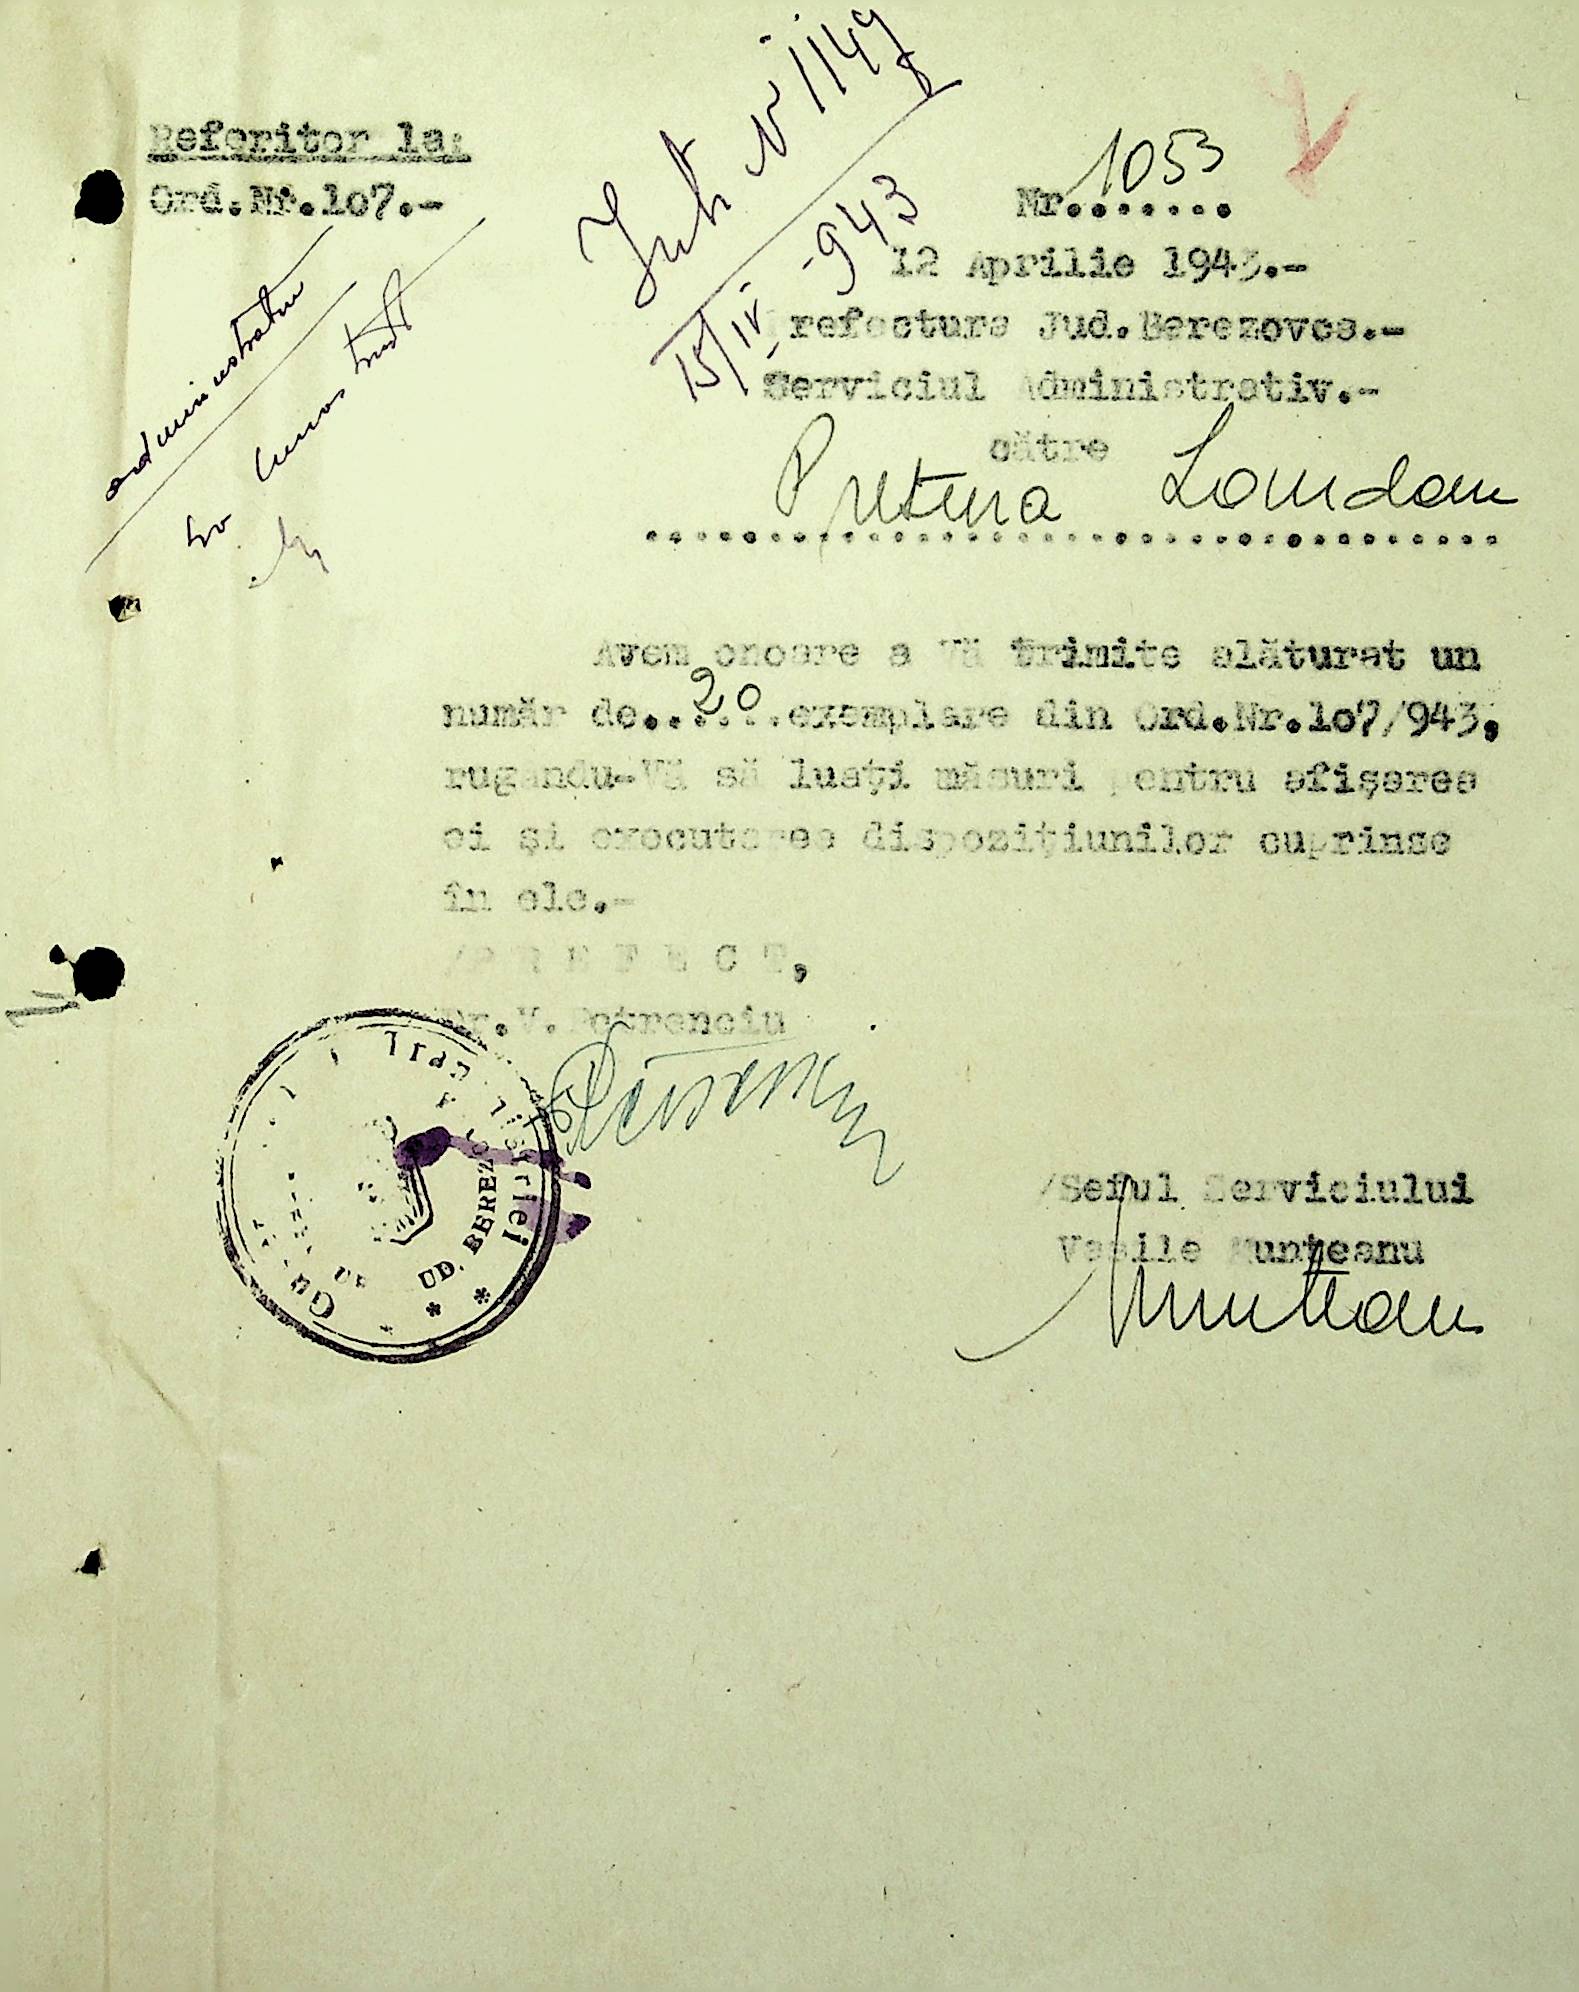 Referitor la:
Ord.Nr.lo7.-
Int. N 1149
15/IV -943
Nr. 1053
12 Aprilie 1943.-
Prefectura Jud.Berezovca.-
Serviciul Administrativ.-
către
Pretura Landau
administrativ
Avem onoare a Vă trimite alăturat un
număr de..20..exemplare din Ord.Nr.lo7/943,
rugandu-Vă să luaţi măsuri pentru afişarea
ei şi executarea dispoziţiunilor cuprinse
în ele.-
/P R E F E C T,
Dr.V.Petrenciu
/Seful Serviciului
Vasile Munteanu
Munteanu
UD. BEREZO